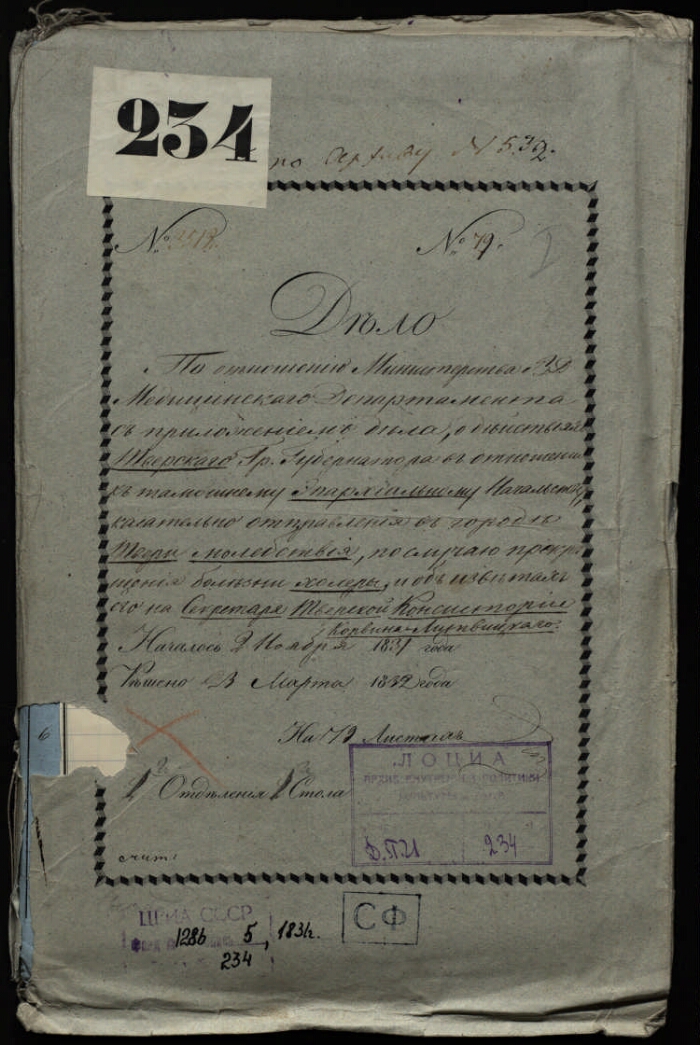 234
по Архиву № 532.
№ 79.
Дѣло
По отношенію Министерства В. Д
Медицинскаго Департамента
съ приложеніемъ дѣла, о дѣйствіяхъ
Тверскаго Гр. Губернатора въ отношеніи
къ тамошнему Епархіальному Начальству,
касательно отправленія въ городѣ
Твери молебствія, по случаю прекра
щенія болѣзни холеры, и объ извѣтахъ
его на Секретаря Тверской Консисторіи
Корвина-Лихвицкаго.
Началось 2 Ноября 1831 года
Рѣшено 23 Марта 1832 года
На 73 Листахъ
6
2 Отдѣленія 3 Стола
ЛОЦИА
АРХИВ ВНУТРЕННЕЙ ПОЛИТИКИ
КУЛЬТУРЫ И БЫТА
Д.П.И 234
ЦГИА СССР
СФ
фонд 1286 5, 1831г.
234